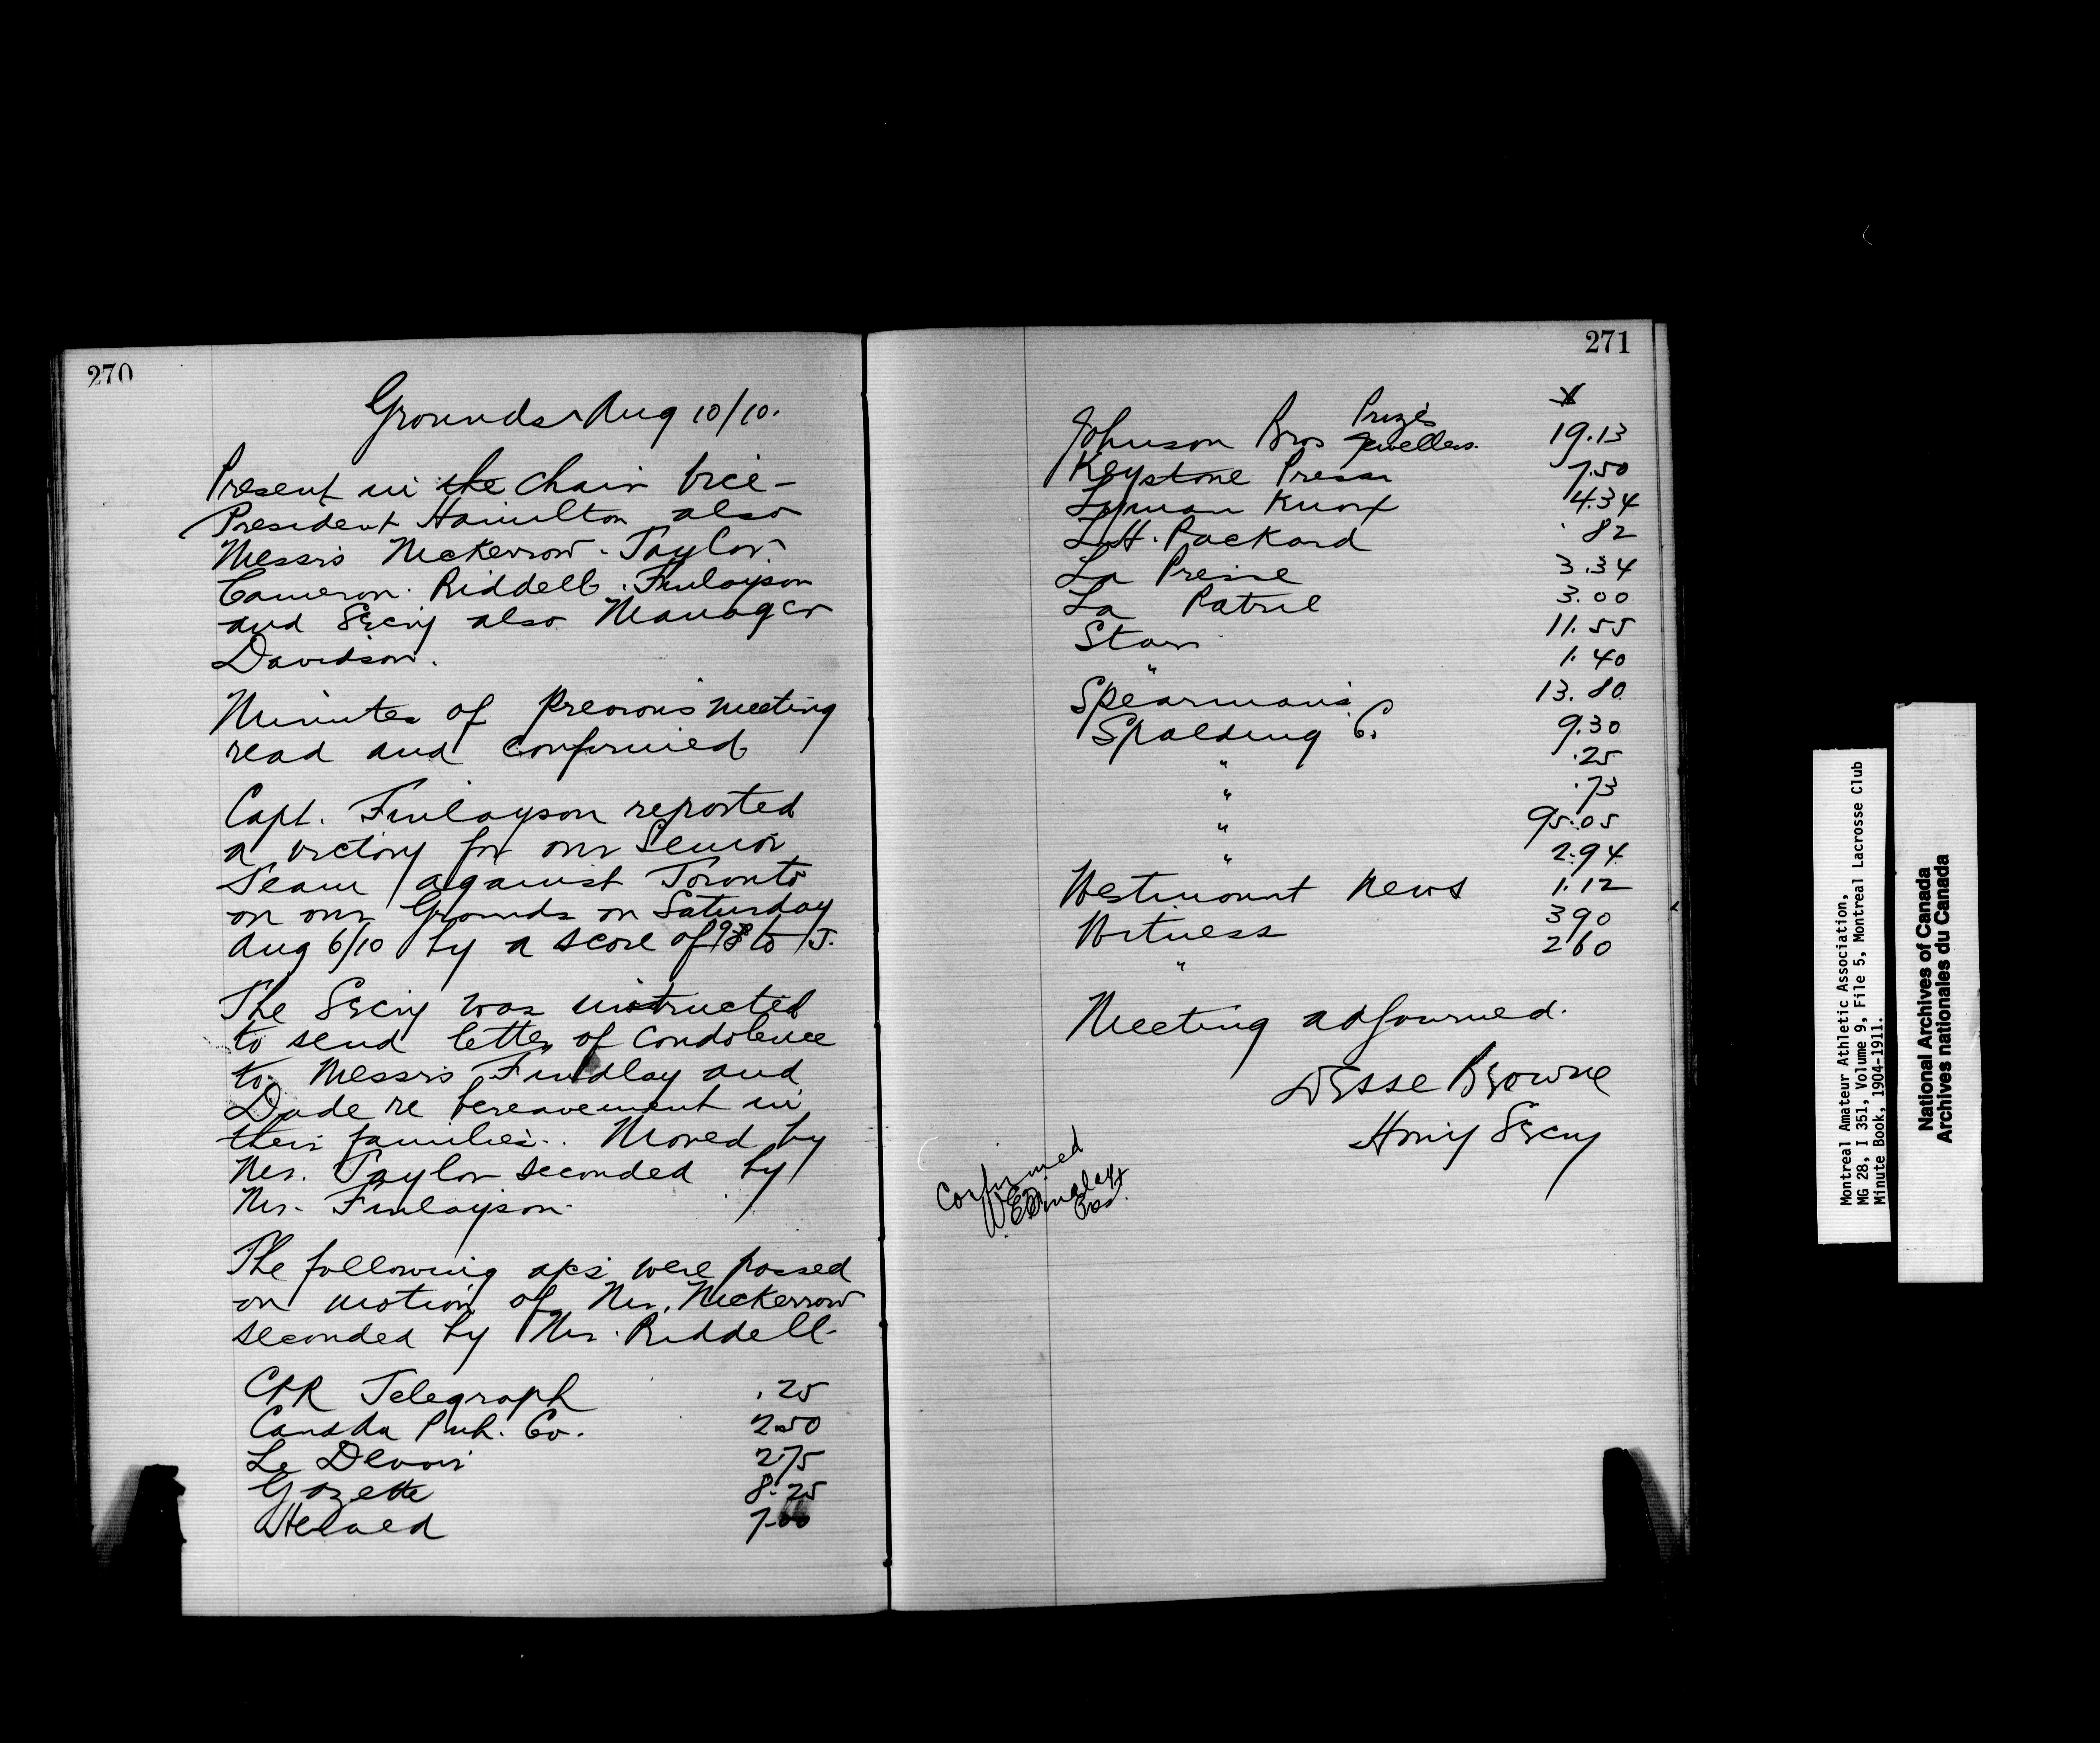 270
Grounds Aug 10/10.
Present in the Chair Vice-
President Hamilton also
Messrs McKerrow. Taylor
Cameron. Riddell. Finlayson
and Secy also Manager
Davidson.
Minutes of previous meeting
read and confirmed
Capt. Finlayson reported
a victory for our Senior
Team against Toronto
on our Grounds on Saturday
Aug 6/10 by a score of to 5.
The Secy was instructed
to send letter of Condolence
to Messrs Findlay and
Dade re bereavement in
their families. Moved by
Mr. Taylor seconded by
Mr. Finlayson.
The following a/cs were passed
on motion of Mr. McKerrow
seconded by Mr. Riddell
CPR Telegraph .25
Canada Pub. Co. 2.50
Le Devoir 2.75
Gazette 8.25
Herald 7.00
271
$
Johnson Bros Prizes Jewellers. 19.13
Keystone Press 7.50
Lyman Knox 4.34
L.H. Packard .82
La Presse 3.34
La Patrie 3.00
Star 11.55
" 1.40
Spearman's 13.80
Spalding 9.30
" .25
" .73
" 95.05
" 2.94
Westmount News 1.12
Witness 3 90
" 2 60
Meeting adjourned.
Jesse Browne
Hony Secy
Confirmed
Montreal Amateur Athletic Association,
MG 28, I 351, Volume 9, File 5, Montreal Lacrosse Club
Minute Book, 1904-1911.
National Archives of Canada
Archives nationales du Canada